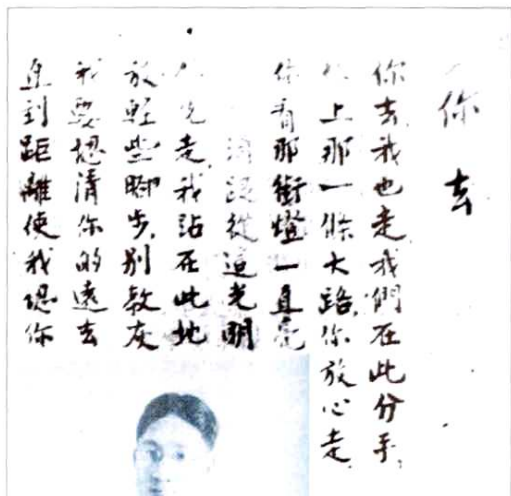 你去
你去,我也走,我們在此分手;
上那一條大路,你放心走,
你看那街燈一直亮
消跟從這光明
先走,我站在此地
放輕些腳步,別教灰
我要認清你的遠去
直到距離使我認你